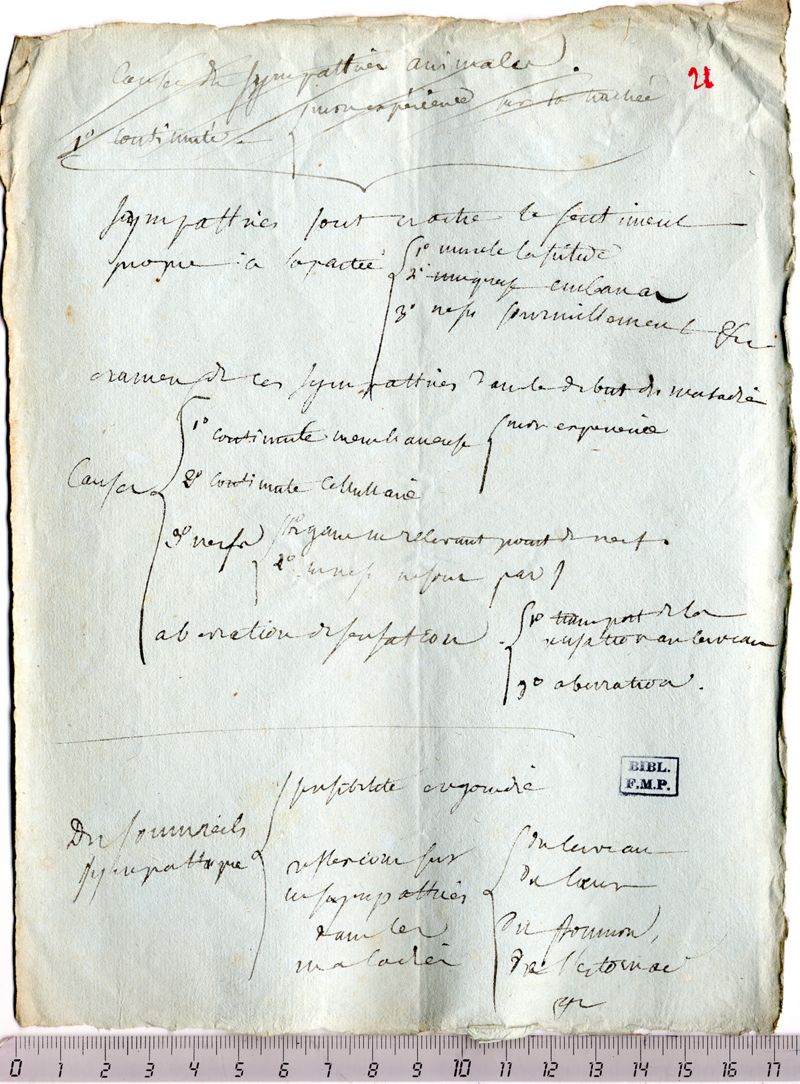 Causes des sympathies animales.
21
mon expérience sur la trachée
1º continuité
sympathies sont naitre le sentiment
propre à la partie
1º muscle lassitude
2º muqueuse
3º nerfs fourmillement &c
examen de ces sympathies dans le debut des maladie
Causes
1º continuité membraneuse
mon experience
2º continuité cellullaire
3º nerfs
1º organe ne recevant point de nerf.
2º
aberration de sensation
1º transport de la
sensation au cerveau
2º aberration.
BIBL.
F.M.P.
sensibilité engourdie
Du sommeils
sympathique
reflexions sur
les sympathies
dans les
maladies
du cerveau
du coeur
du poumon,
de l'estomac
&c
0 1 2 3 4 5 6 7 8 9 10 11 12 13 14 15 16 17